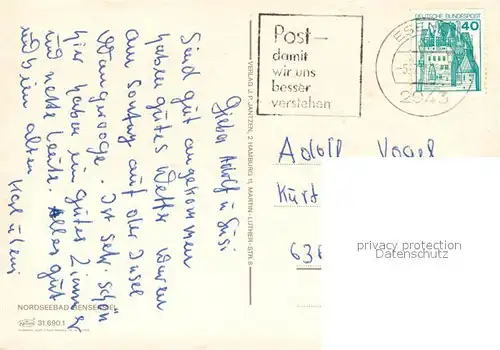 Post –
damit
wir uns
besser
verstehen
DEUTSCHE BUNDESPOST
40
ESEN
2943
Lieber Adolf u. Susi
Sind gut angekommen
haben gutes Wetter waren
am Sonntag auf der Insel
Wangerooge. Ist sehr schön
hier haben ein gutes Zimmer
und nette Leute. Alles gut
und beim alten
VERLAG J. P. JANTZEN, 2 HAMBURG 11, MARTIN-LUTHER-STR. 8
Adolf Vogel
Kurt
636
privacy protection
Datenschutz
NORDSEEBAD BENSERSIEL
31.690.1